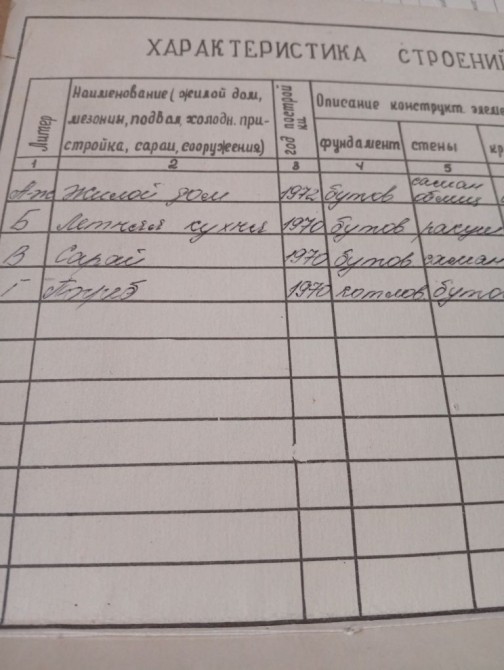 ХАРАКТЕРИСТИКА СТРОЕНИЙ
Литер
Наименование (жилой дом,
мезонин, подвал, холодн. при-
стройка, сараи, сооружения)
год построй
ки
Описание конструкт. элеме
фундамент стены кр
1 2 3 4 5
Жилой дом 1972 бутов саман
облиц
Б Летняя кухня 1970 бутов ракуш
В Сарай 1970 бутов саман
Г Погреб 1970 котлов бутов